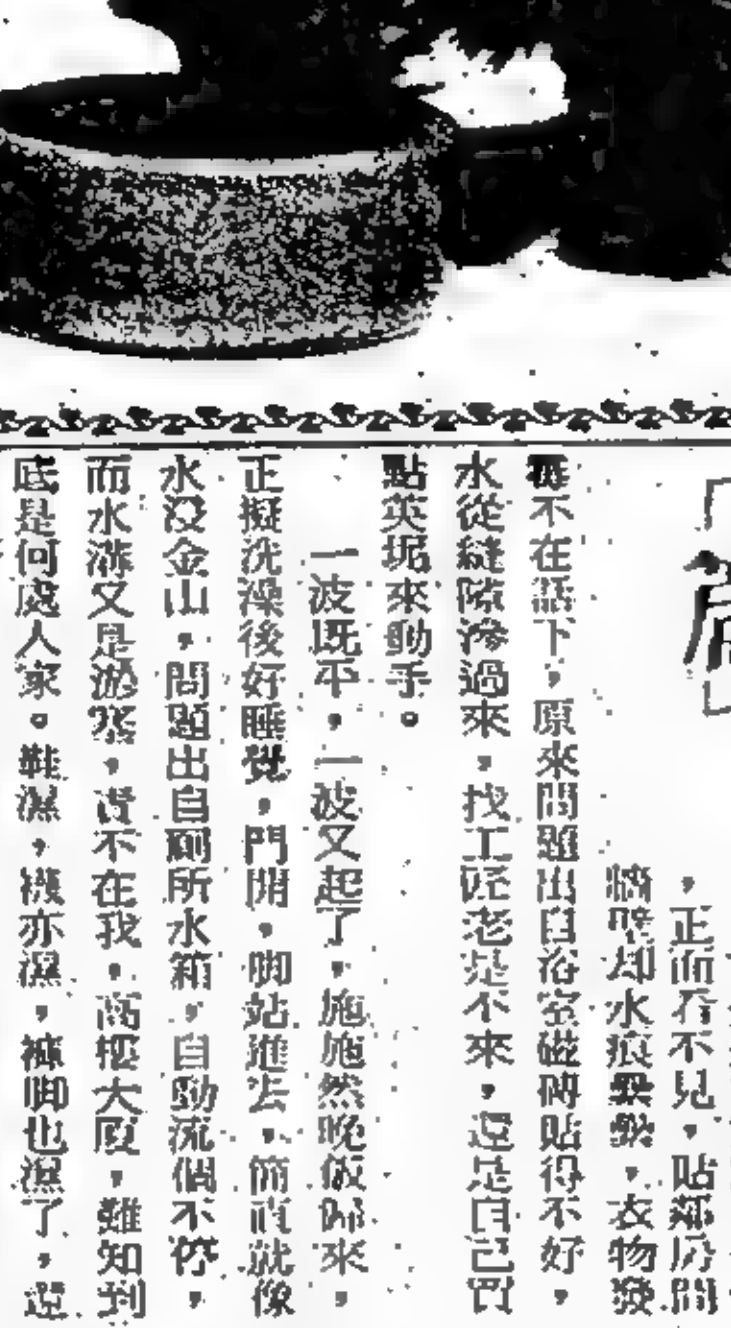 ，正面看不見，貼鄰房間
牆壁却水痕纍纍，衣物發
霉不在話下，原來問題出自浴室磁磚貼得不好，
水從縫隙滲過來，找工匠老是不來，還是自己買
點英坭來動手。
一波既平，一波又起了，施施然晚飯歸來，
正擬洗澡後好睡覺，門開，脚站進去，簡直就像
水没金山，問題出自厠所水箱，自動流個不停，
而水溝又是淤塞，責不在我，高樓大厦，難知到
底是何處人家。鞋濕，襪亦濕，褲脚也濕了，還